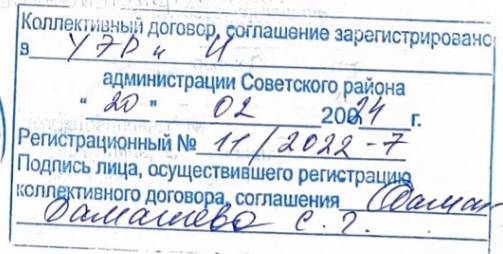 Коллективный договор, соглашение зарегистрировано
в УЭР и И
администрации Советского района
" 20 " 02 20024 г.
Регистрационный № 11/2022-7
Подпись лица, осуществившего регистрацию
коллективного договора, соглашения
С. Г.